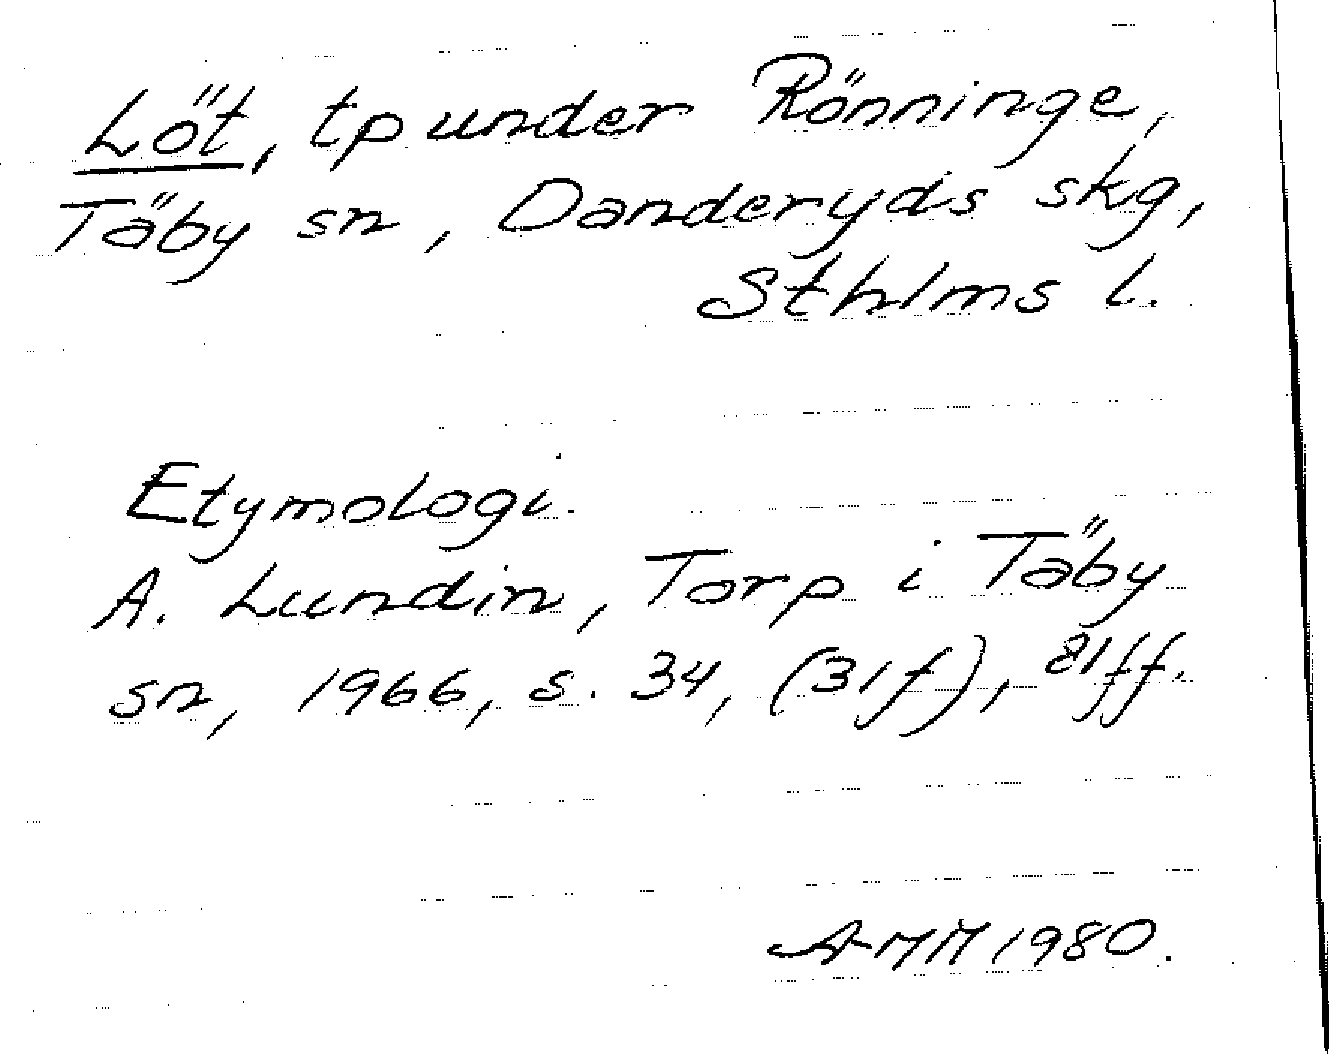 Löt, tp under Rönninge,
Täby sn, Danderyds skg,
Sthlms l.
Etymologi.
A. Lundin, Torp i Täby
sn, 1966, s. 34, (31f), 81ff.
AMM 1980.